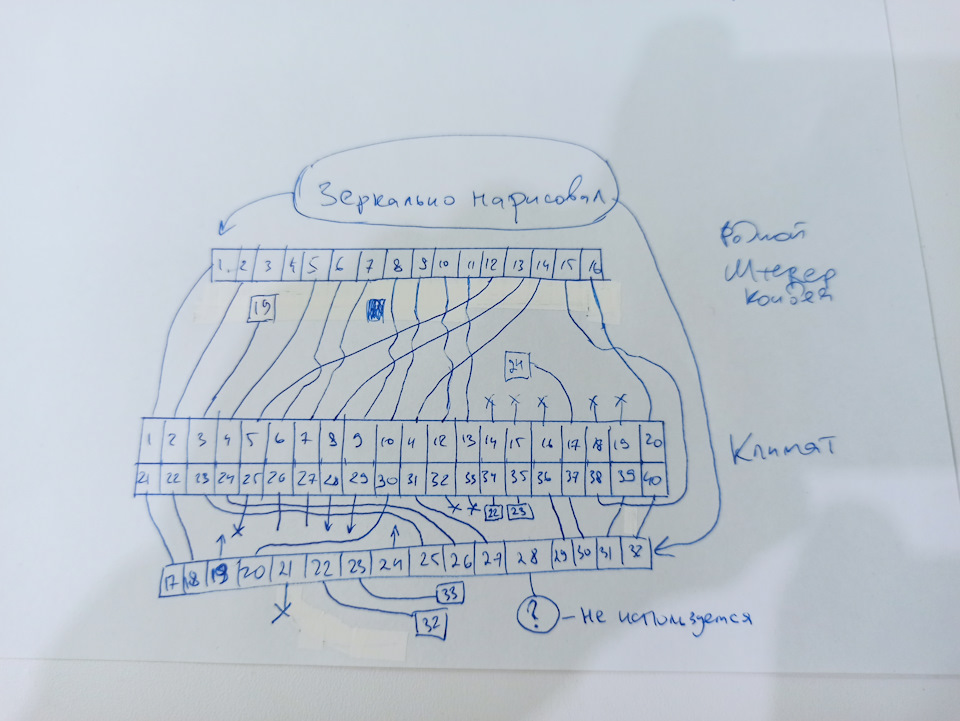 Зеркально нарисовал
Родной
1 2 3 4 5 6 7 8 9 10 11 12 13 14 15 16
19
24
x x x x x
1 2 3 4 5 6 7 8 9 10 11 12 13 14 15 16 17 18 19 20
Климат
21 22 23 24 25 26 27 28 29 30 31 32 33 34 35 36 37 38 39 40
x x x 22 23
17 18 19 20 21 22 23 24 25 26 27 28 29 30 31 32
33
x 32 ? - не используется